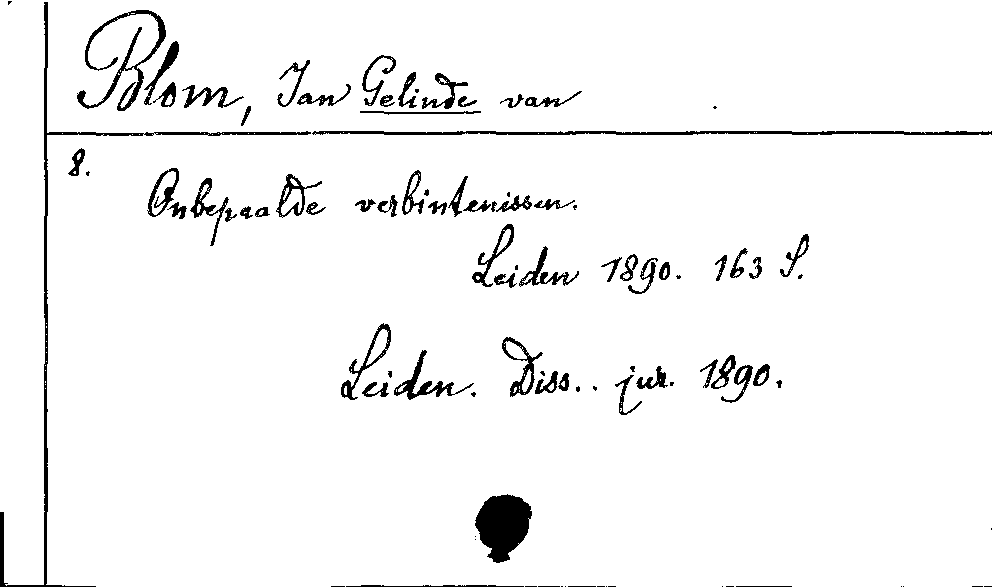 Blom, Jan Gelinde van
8.
Onbepaalde verbintenissen.
Leiden 1890. 163 S.
Leiden. Diss.. jur. 1890.